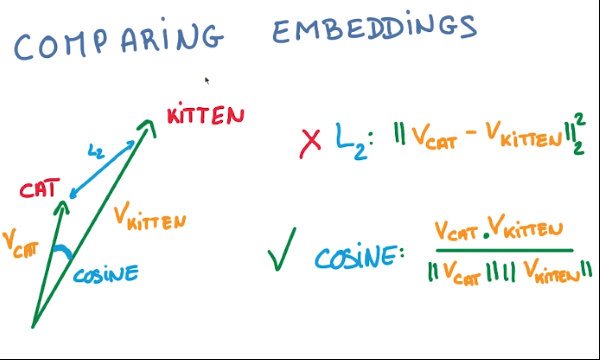 COMPARING EMBEDDINGS
KITTEN
L2
CAT
VCAT
VKITTEN
COSINE
X L2: ||VCAT - VKITTEN||²₂
✓ COSINE: VCAT . VKITTEN
||VCAT|| || VKITTEN||